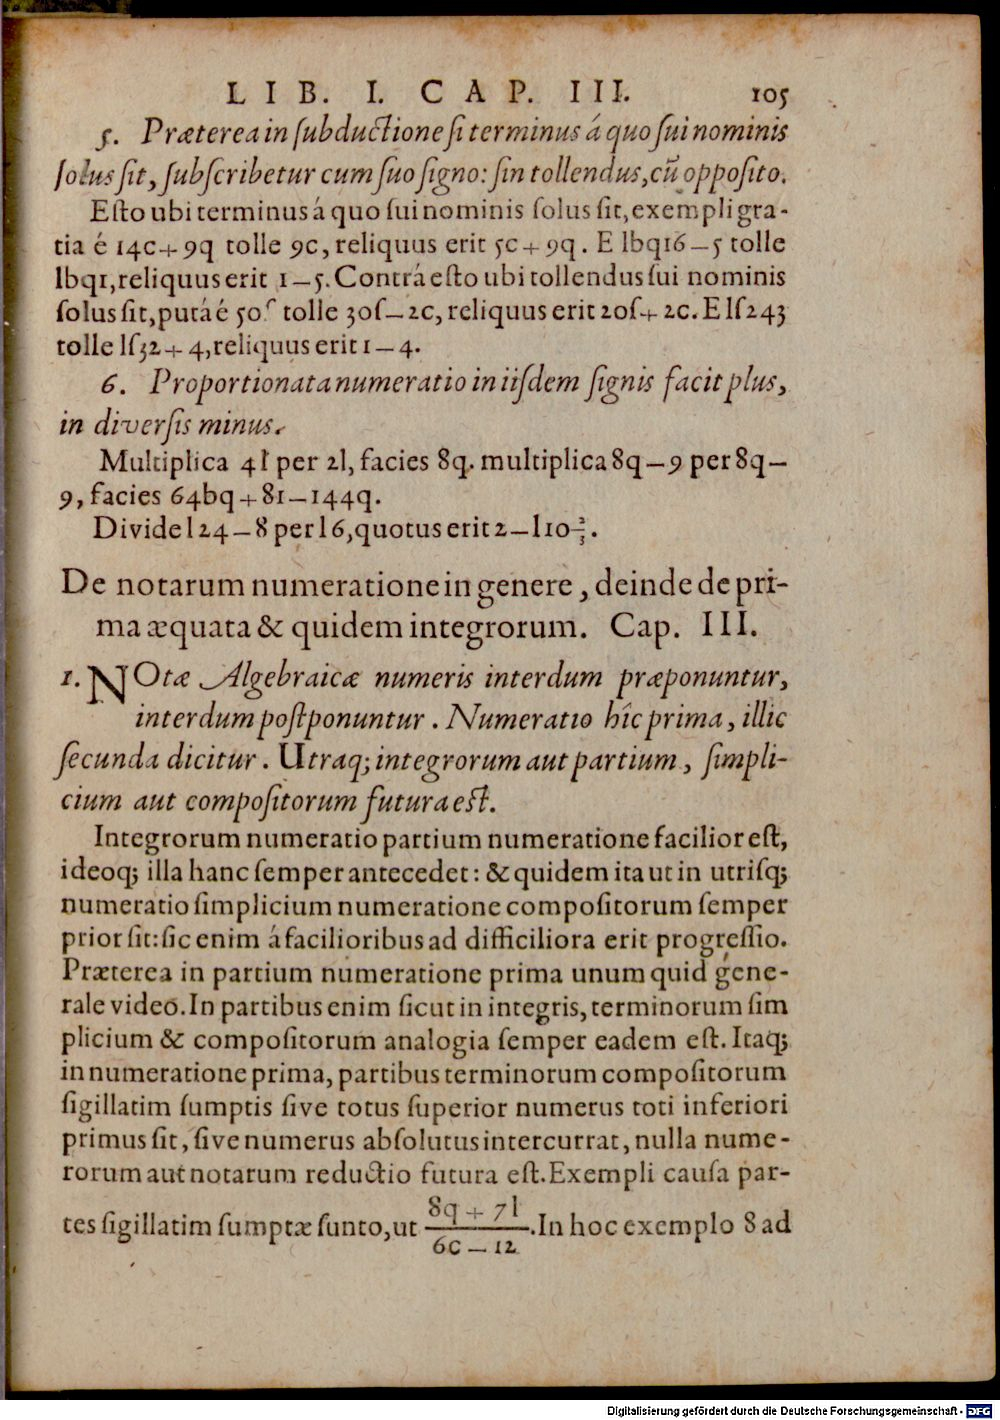 LIB. I. CAP. III. 105
5. Præterea in ſubductione ſi terminus á quo ſui nominis
ſolus ſit, ſubſcribetur cum ſuo ſigno: ſin tollendus, cū oppoſito.
Eſto ubi terminus á quo ſui nominis ſolus ſit, exempli gra-
tia é 14c+9q tolle 9c, reliquus erit 5c+9q. E lbq16—5 tolle
lbq1, reliquus erit 1—5. Contrá eſto ubi tollendus ſui nominis
ſolus ſit, putá é 50ſ tolle 30ſ—2c, reliquus erit 20ſ+2c. E lſ243
tolle lſ32+4, reliquus erit 1—4.
6. Proportionata numeratio in iiſdem ſignis facit plus,
in diverſis minus.
Multiplica 4l per 2l, facies 8q. multiplica 8q—9 per 8q—
9, facies 64bq+81—144q.
Divide l24—8 per l6, quotus erit 2—l10 2/3.
De notarum numeratione in genere, deinde de pri-
ma æquata & quidem integrorum. Cap. III.
1. NOtæ Algebraicæ numeris interdum præponuntur,
interdum poſtponuntur. Numeratio hîc prima, illic
ſecunda dicitur. Utraq; integrorum aut partium, ſimpli-
cium aut compoſitorum futura eſt.
Integrorum numeratio partium numeratione facilior eſt,
ideoq; illa hanc ſemper antecedet: & quidem ita ut in utriſq;
numeratio ſimplicium numeratione compoſitorum ſemper
prior ſit: ſic enim á facilioribus ad difficiliora erit progreſſio.
Præterea in partium numeratione prima unum quid gene-
rale video. In partibus enim ſicut in integris, terminorum ſim
plicium & compoſitorum analogia ſemper eadem eſt. Itaq;
in numeratione prima, partibus terminorum compoſitorum
ſigillatim ſumptis ſive totus ſuperior numerus toti inferiori
primus ſit, ſive numerus abſolutus intercurrat, nulla nume-
rorum aut notarum reductio futura eſt. Exempli cauſa par-
tes ſigillatim ſumptæ ſunto, ut (8q + 7l)/(6c — 12). In hoc exemplo 8 ad
Digitalisierung gefördert durch die Deutsche Forschungsgemeinschaft - DFG